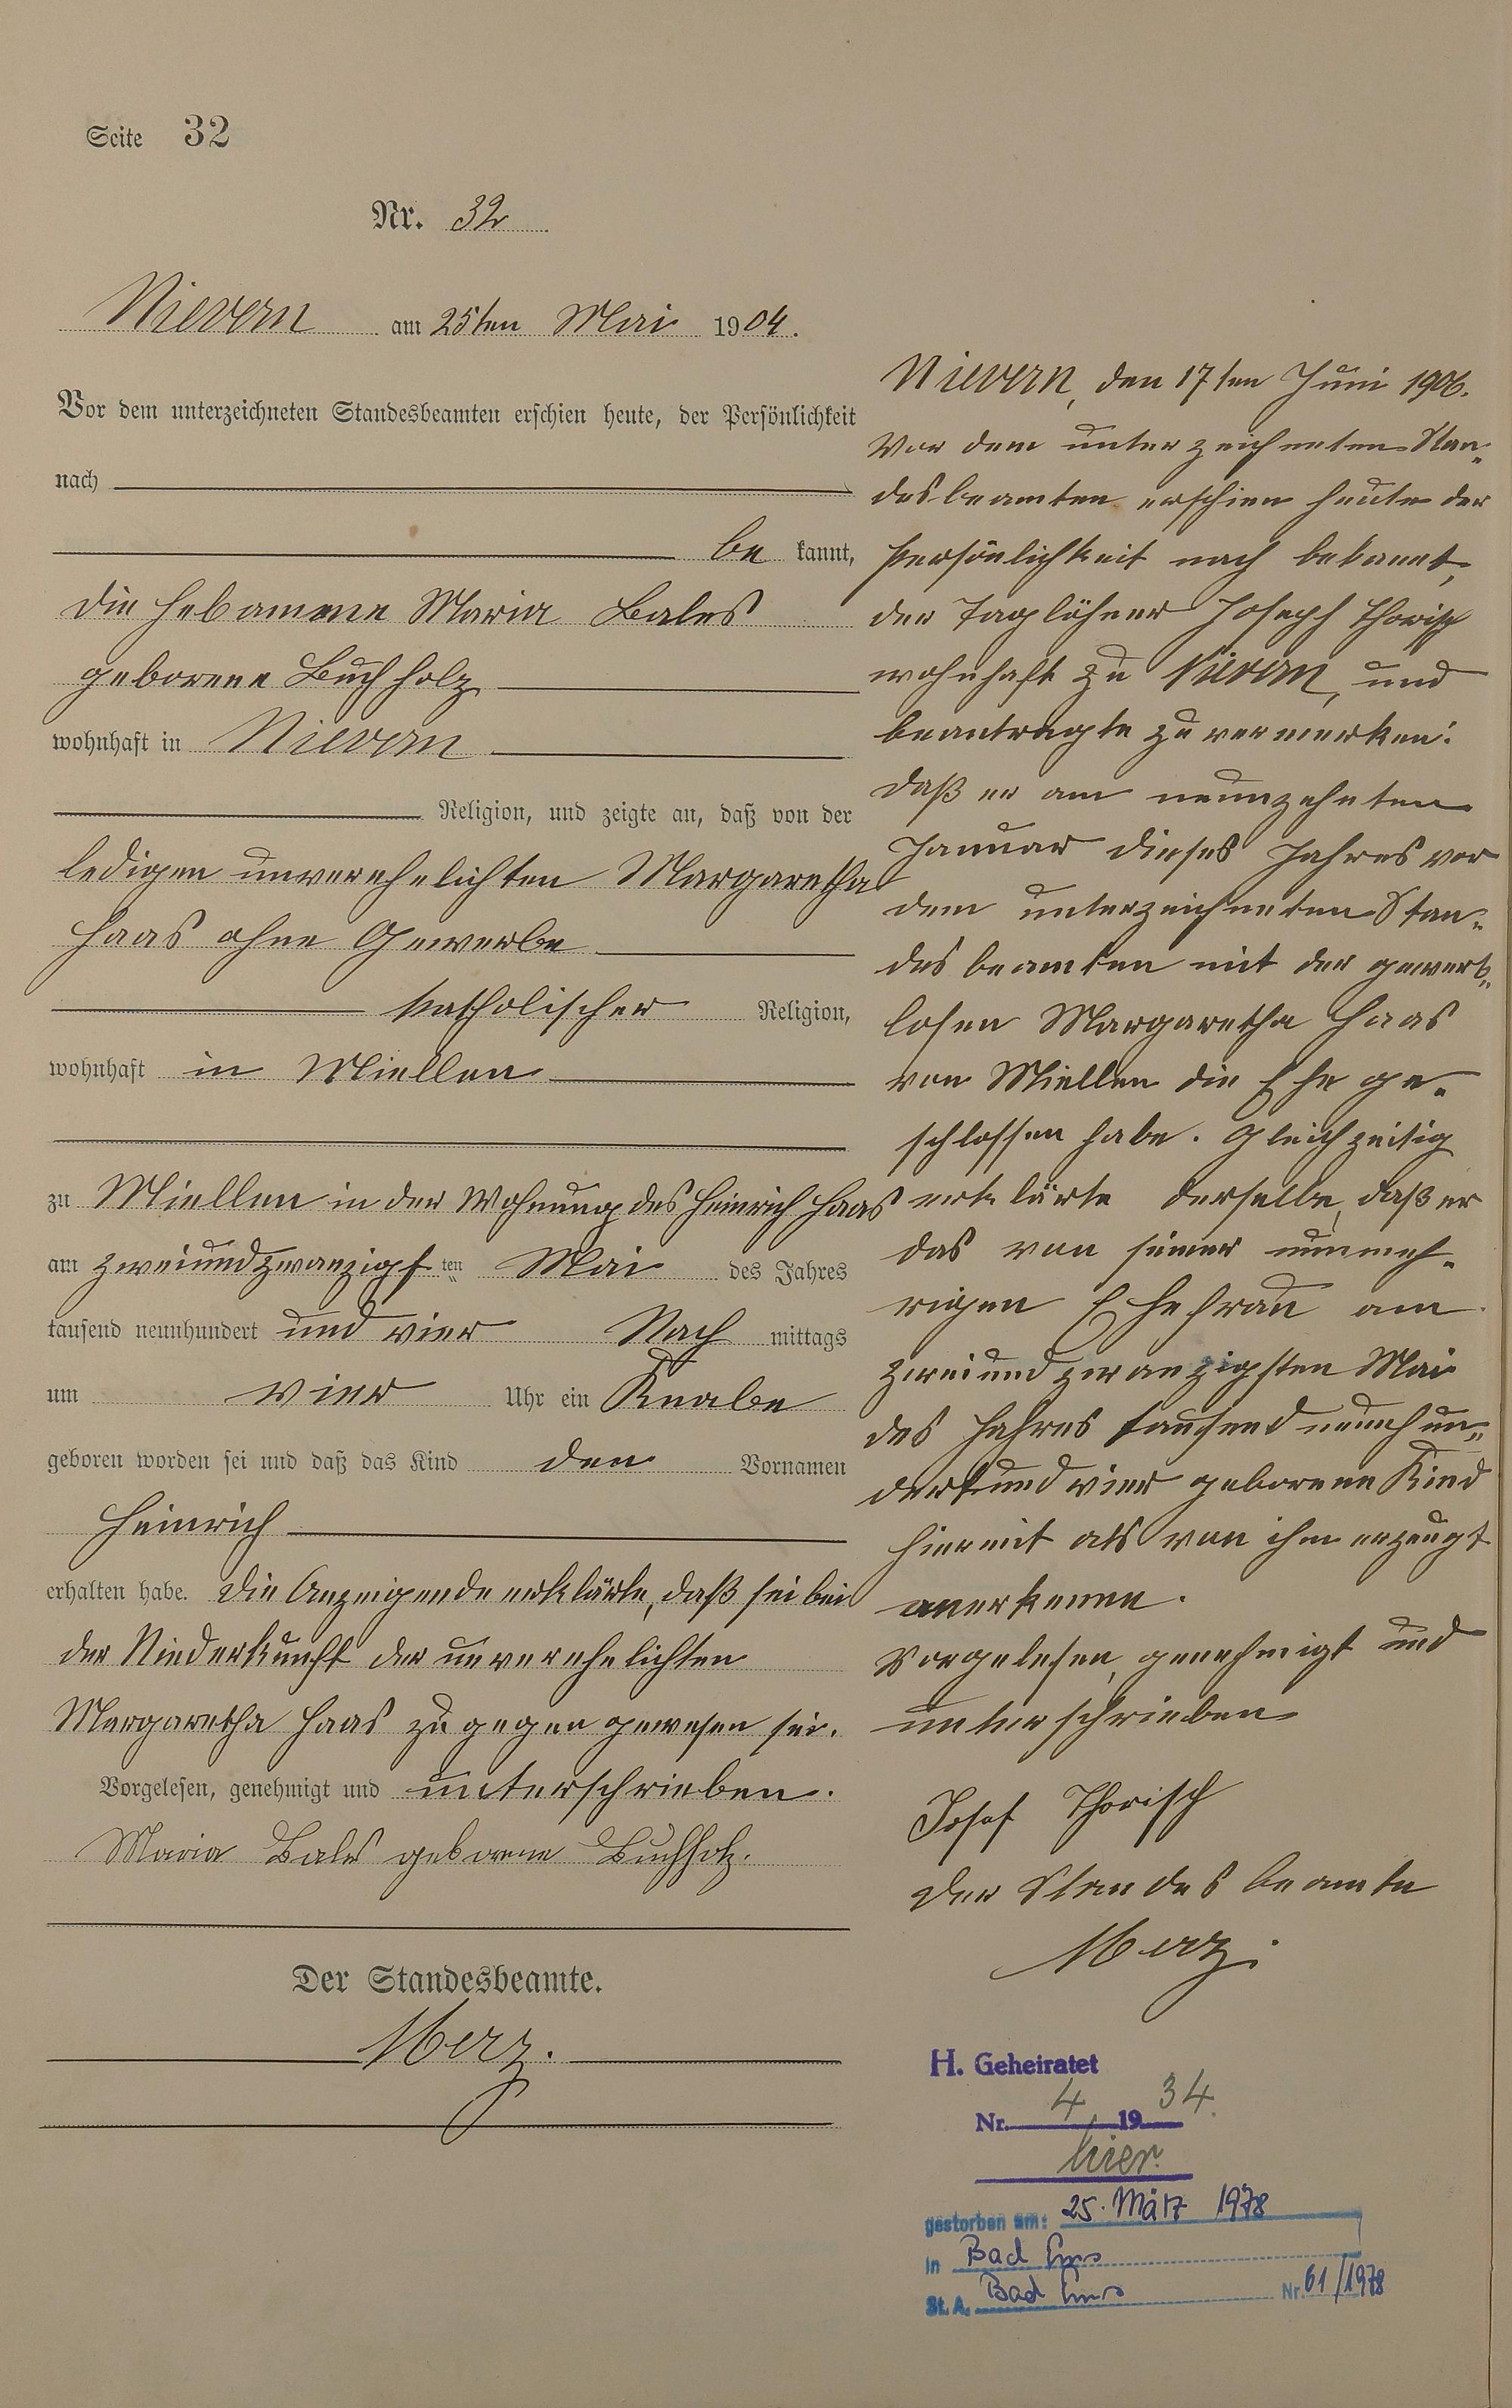 Seite 32
Nr. 32
Nievern am 25ten Mai 1904.
Vor dem unterzeichneten Standesbeamten erschien heute, der Persönlichkeit
nach
be kannt,
die Hebamme Maria Bales
geborene Buchholz
wohnhaft in Nievern
Religion, und zeigte an, daß von der
ledigen unverehelichten Margaretha
Haas ohne Gewerbe
katholischer Religion,
wohnhaft in Miellen
zu Miellen in der Wohnung des Heinrich Haas
am zweiundzwanzigsten Mai des Jahres
tausend neunhundert und vier Nach mittags
um vier Uhr ein Knabe
geboren worden sei und daß das Kind den Vornamen
Heinrich
erhalten habe. Die Anzeigende erklärte, daß sei bei
der Niederkunft der unverehelichten
Margaretha Haas zugegen gewesen sei.
Vorgelesen, genehmigt und unterschrieben.
Maria Bales geborene Buchholz.
Der Standesbeamte.
Merz.
Nievern, den 17ten Juni 1906.
Vor dem unterzeichneten Stan-
desbeamten erschien heute der
Persönlichkeit nach bekannt,
der Taglöhner Joseph Thorisch
wohnhaft zu Nievern, und
beantragte zu vermerken:
daß er am neunzehnten
Januar dieses Jahres vor
dem unterzeichneten Stan-
desbeamten mit der gewerb-
losen Margaretha Haas
von Miellen die Ehe ge-
schlossen habe. Gleichzeitig
erklärte derselbe, daß er
das von seiner nunmeh-
rigen Ehefrau am
zweiundzwanzigsten Mai
des Jahres tausend neunhun-
dertundvier geborene Kind
hiermit als von ihm erzeugt
anerkenne.
Vorgelesen, genehmigt und
unterschrieben
Josef Thorisch
Der Standesbeamte
Merz.
H. Geheiratet
Nr. 4, 1934.
hier.
gestorben am: 25. März 1978
in Bad Ems
St. A. Bad Ems Nr. 61/1978